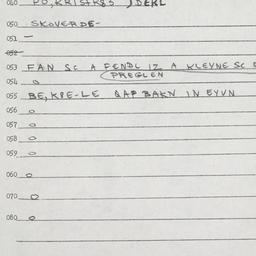 050 SKOVERDE-
051 —
052
053 FAN SC A FENDL IZ A KLEVNE SC
PREGLEN
054 o
055 BE, KPE-LE QAP BAKN IN EYVN
056 o
057 o
058 o
059 o
060 o
070 o
080 o